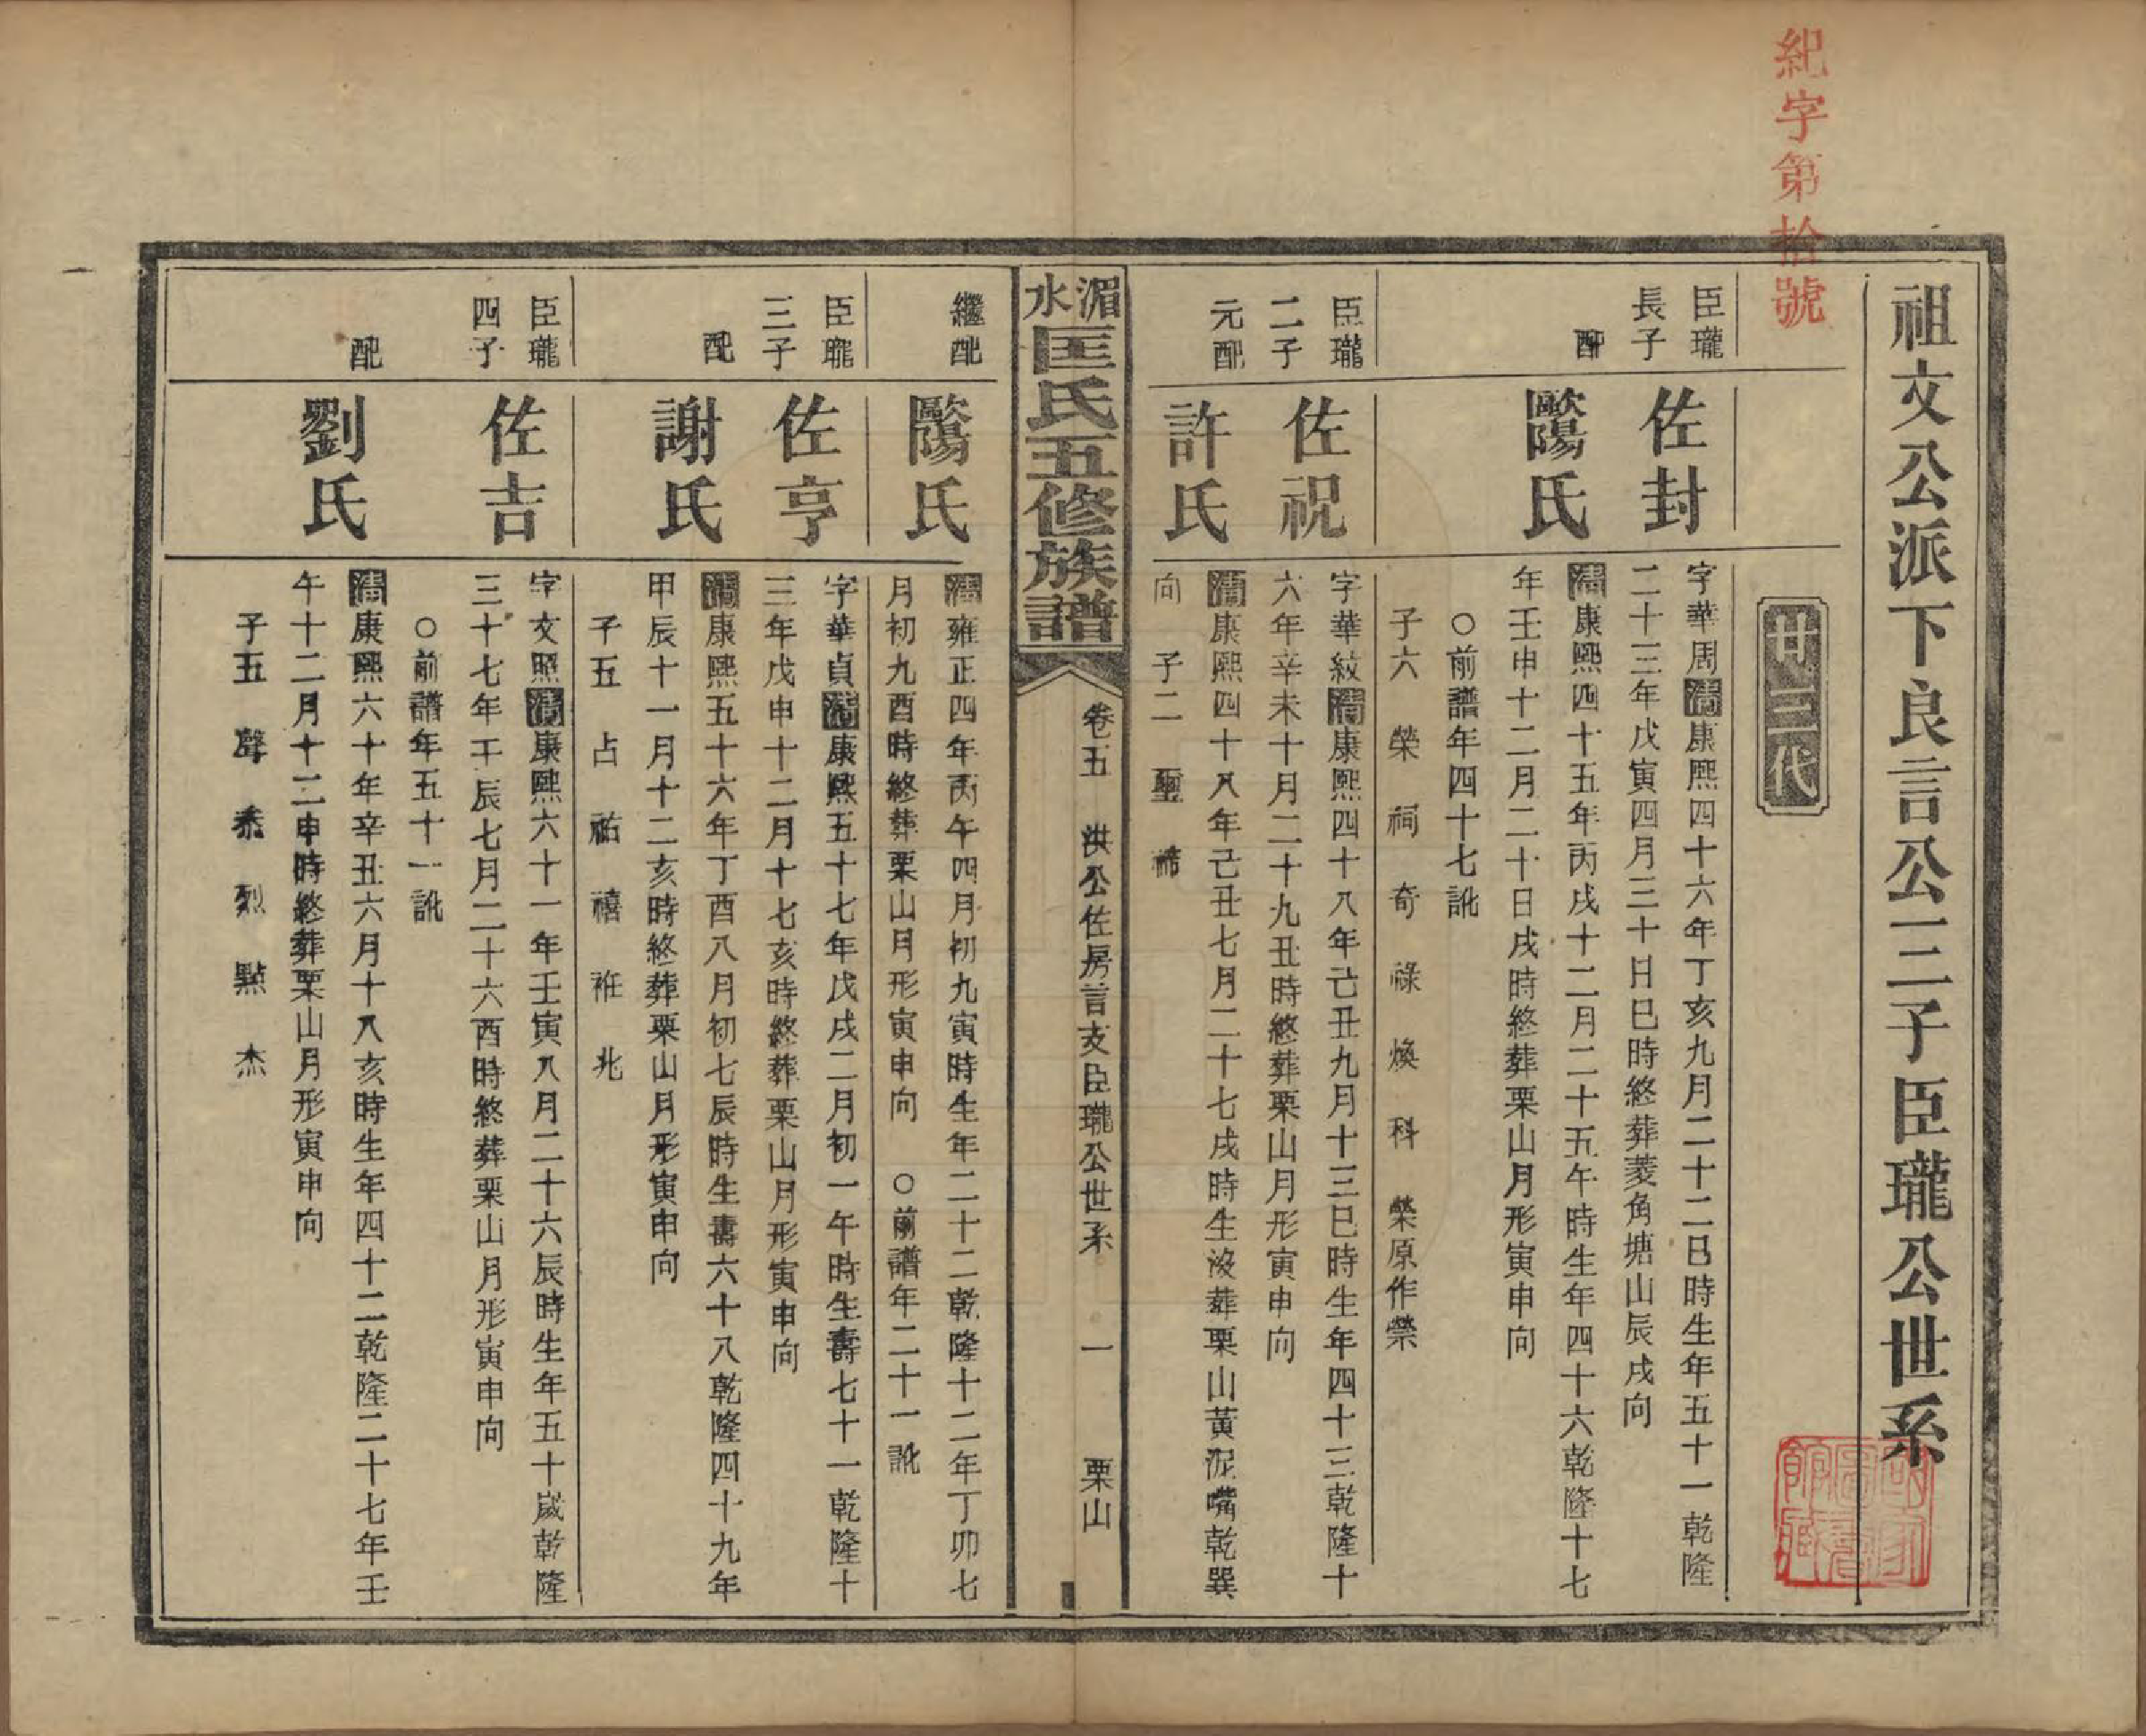 紀字第拾號
祖文公派下良言公三子臣瓏公世系
廿三代
臣瓏
長子
佐封
字華周清康熙四十六年丁亥九月二十二巳時生年五十一乾隆
二十三年戊寅四月三十日巳時終葬菱角塘山辰戌向
配
歐陽氏
清康熙四十五年丙戌十二月二十五午時生年四十六乾隆十七
年壬申十二月二十日戌時終葬栗山月形寅申向
○前譜年四十七訛
子六 榮 祠 奇 祿 煥 科 榮原作榮
臣瓏
二子
佐祝
字華紋清康熙四十八年己丑九月十三巳時生年四十三乾隆十
六年辛未十月二十九丑時終葬栗山月形寅申向
元配
許氏
清康熙四十八年己丑七月二十七戌時生歿葬栗山黃泥嘴乾巽
向 子二 聖 禘
湄水匡氏五修族譜
卷五 洪公佐房言支臣瓏公世系 一 栗山
繼配
歐陽氏
清雍正四年丙午四月初九寅時生年二十二乾隆十二年丁卯七
月初九酉時終葬栗山月形寅申向 ○前譜年二十一訛
臣瓏
三子
佐亨
字華貞清康熙五十七年戊戌二月初一午時生壽七十一乾隆十
三年戊申十二月十七亥時終葬栗山月形寅申向
配
謝氏
清康熙五十六年丁酉八月初七辰時生壽六十八乾隆四十九年
甲辰十一月十二亥時終葬栗山月形寅申向
子五 占 祐 禧 祚 兆
臣瓏
四子
佐吉
字文照清康熙六十一年壬寅八月二十六辰時生年五十歲乾隆
三十七年壬辰七月二十六酉時終葬栗山月形寅申向
○前譜年五十一訛
配
劉氏
清康熙六十年辛丑六月十八亥時生年四十二乾隆二十七年壬
午十二月十二申時終葬栗山月形寅申向
子五 馨 烝 烈 點 杰